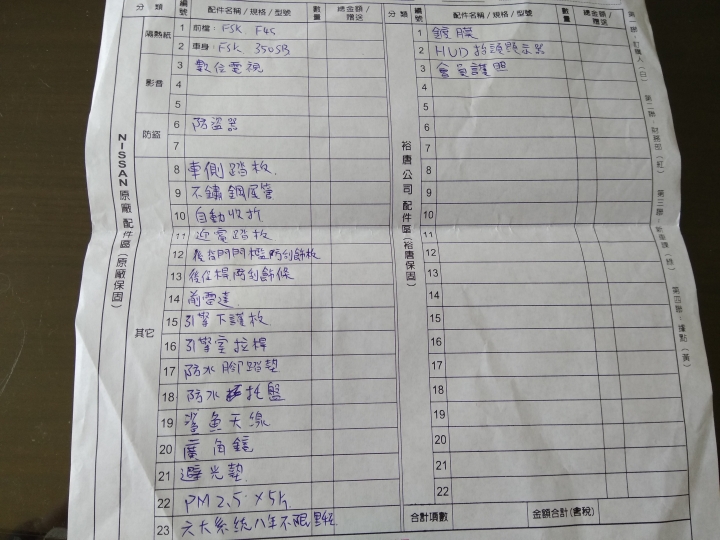 分類 編號 配件名稱/規格/型號 數量 總金額/贈送
隔熱紙
1 前檔:FSK F45
2 車身:FSK 350SB
影音
3 數位電視
4
5
防盜
6 防盜器
7
NISSAN原廠配件區(原廠保固)
其它
8 車側踏板
9 不鏽鋼尾管
10 自動收折
11 迎賓踏板
12 後台門門檻防刮飾板
13 後保桿防刮飾條
14 前雷達
15 引擎下護板
16 引擎室拉桿
17 防水腳踏墊
18 防水托盤
19 鯊魚天線
20 廣角鏡
21 避光墊
22 PM2.5 X5片
23 六大系統八年不限里程
分類 編號 配件名稱/規格/型號 數量 總金額/贈送
裕唐公司配件區(裕唐保固)
1 鍍膜
2 HUD抬頭顯示器
3 會員護照
4
5
6
7
8
9
10
11
12
13
14
15
16
17
18
19
20
21
22
合計項數 金額合計(含稅)
第一聯:訂購人(白) 第二聯:財務部(紅) 第三聯:新車課(綠) 第四聯:據點(黃)